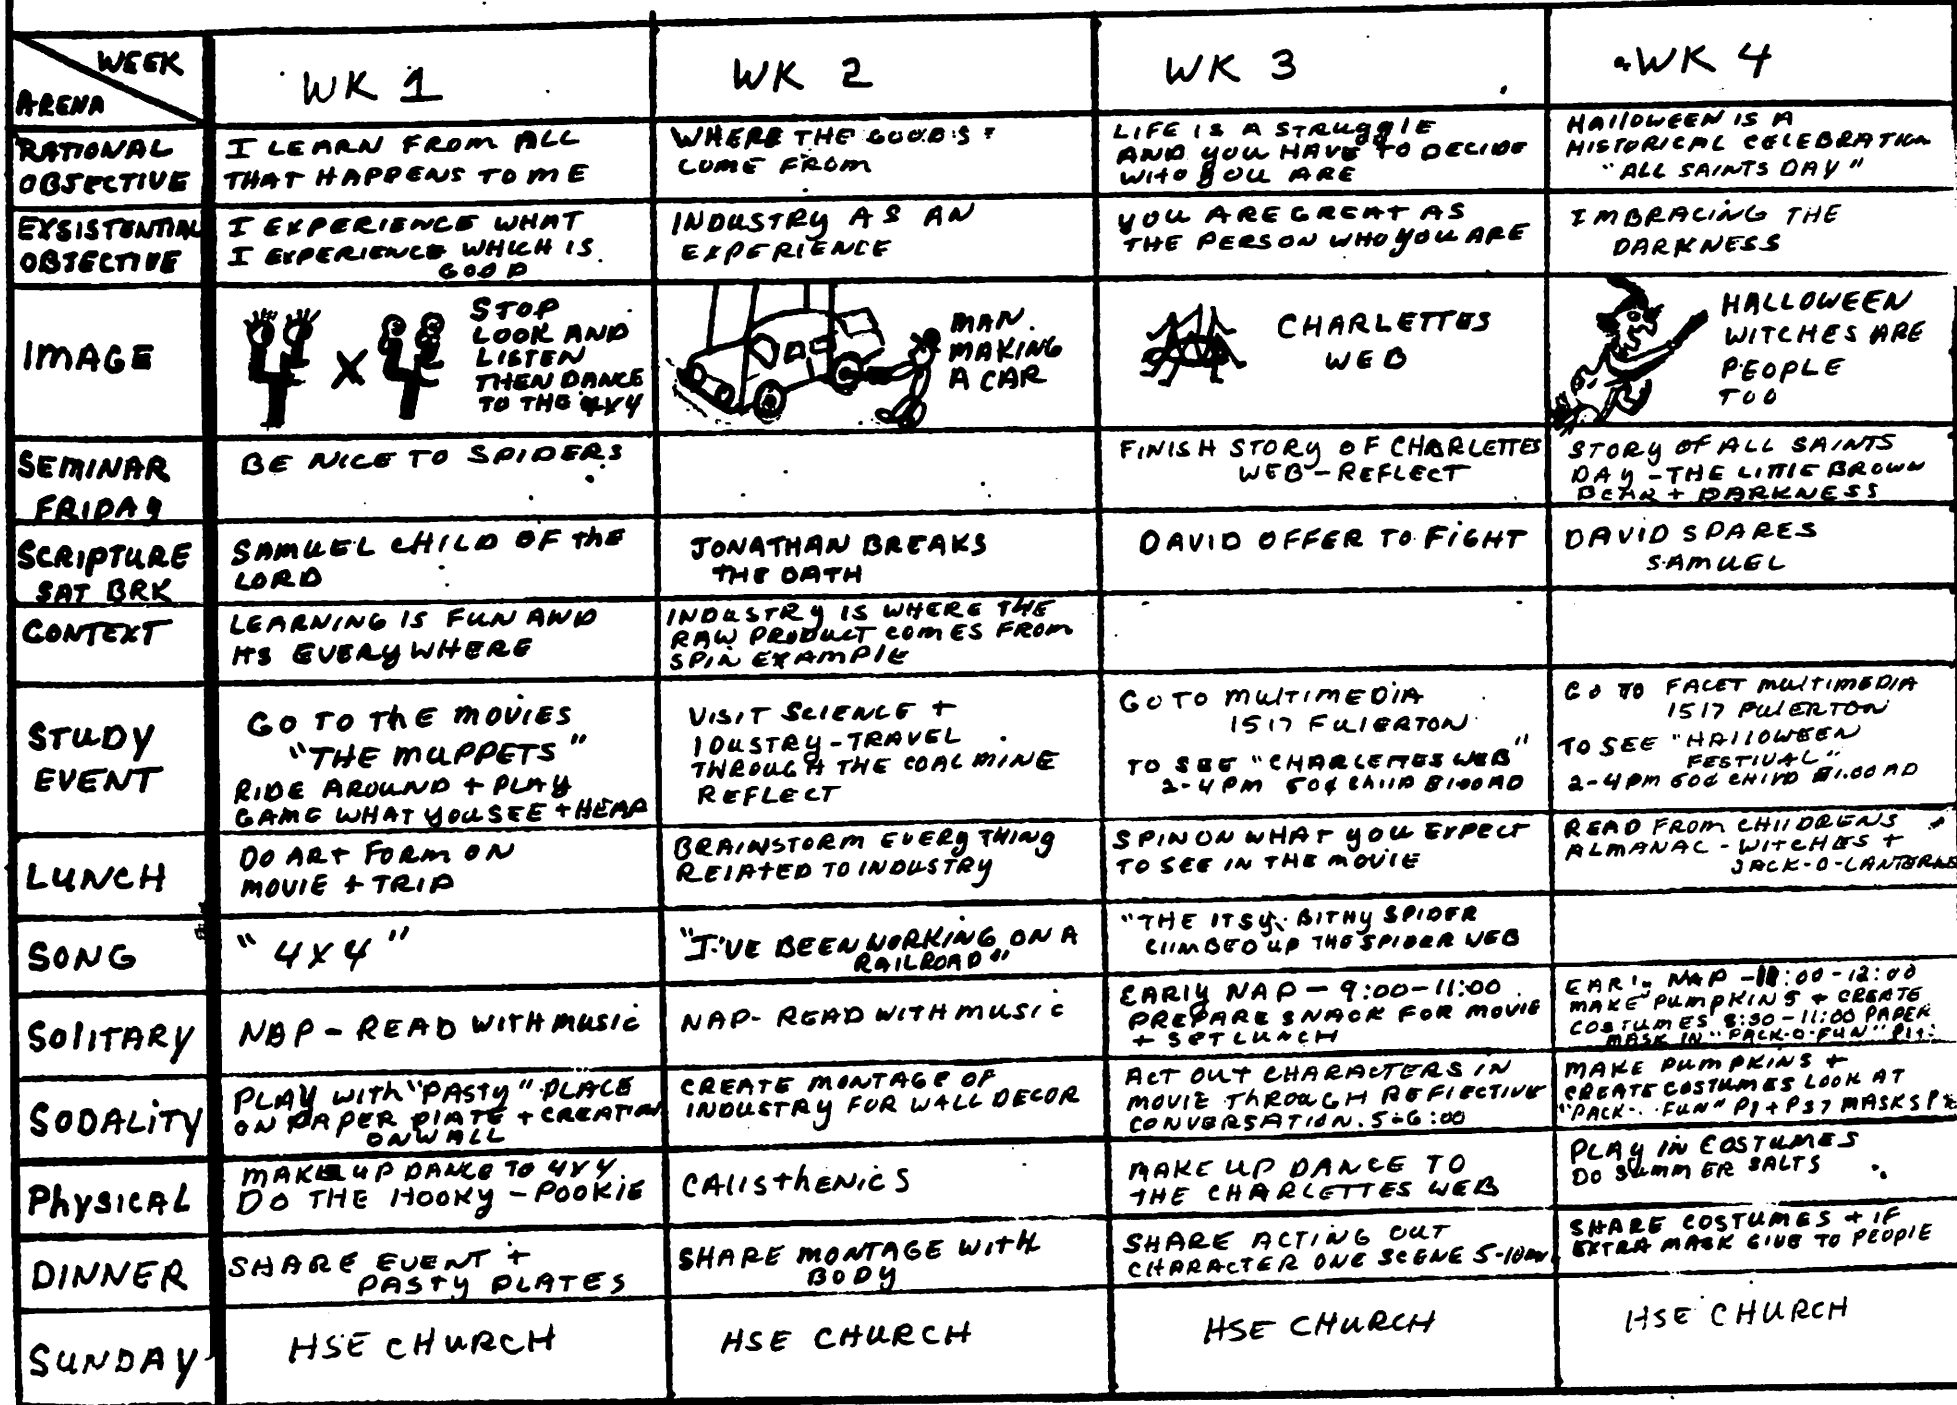 WEEK
ARENA
WK 1
WK 2
WK 3
WK 4
RATIONAL
OBJECTIVE
I LEARN FROM ALL
THAT HAPPENS TO ME
WHERE THE GOOD'S
COME FROM
LIFE IS A STRUGGLE
AND YOU HAVE TO DECIDE
WHO YOU ARE
HALLOWEEN IS A
HISTORICAL CELEBRATION
"ALL SAINTS DAY"
EXSISTENTIAL
OBJECTIVE
I EXPERIENCE WHAT
I EXPERIENCE WHICH IS
GOOD
INDUSTRY AS AN
EXPERIENCE
YOU ARE GREAT AS
THE PERSON WHO YOU ARE
IMBRACING THE
DARKNESS
IMAGE
X
STOP
LOOK AND
LISTEN
THEN DANCE
TO THE 4X4
MAN
MAKING
A CAR
CHARLETTES
WEB
HALLOWEEN
WITCHES ARE
PEOPLE
TOO
SEMINAR
FRIDAY
BE NICE TO SPIDERS
FINISH STORY OF CHARLETTES
WEB - REFLECT
STORY OF ALL SAINTS
DAY - THE LITTLE BROWN
BEAR + DARKNESS
SCRIPTURE
SAT BRK
SAMUEL CHILD OF THE
LORD
JONATHAN BREAKS
THE OATH
DAVID OFFER TO FIGHT
DAVID SPARES
SAMUEL
CONTEXT
LEARNING IS FUN AND
ITS EVERYWHERE
INDUSTRY IS WHERE THE
RAW PRODUCT COMES FROM
SPIN EXAMPLE
STUDY
EVENT
GO TO THE MOVIES
"THE MUPPETS"
RIDE AROUND + PLAY
GAME WHAT YOU SEE + HEAR
VISIT SCIENCE +
IDUSTRY - TRAVEL
THROUGH THE COAL MINE
REFLECT
GO TO MULTIMEDIA
1517 FULLERTON
TO SEE "CHARLETTES WEB"
2-4 PM 50¢ CHILD $1.00 AD
GO TO FACET MULTIMEDIA
1517 FULLERTON
TO SEE "HALLOWEEN
FESTIVAL"
2-4 PM 50¢ CHILD $1.00 AD
LUNCH
DO ART FORM ON
MOVIE + TRIP
BRAINSTORM EVERYTHING
RELATED TO INDUSTRY
SPIN ON WHAT YOU EXPECT
TO SEE IN THE MOVIE
READ FROM CHILDRENS
ALMANAC - WITCHES +
JACK-O-LANTERNS
SONG
"4X4"
"I'VE BEEN WORKING ON A
RAILROAD"
"THE ITSY BITHY SPIDER
CLIMBED UP THE SPIDER WEB
SOLITARY
NAP - READ WITH MUSIC
NAP - READ WITH MUSIC
EARLY NAP - 9:00-11:00
PREPARE SNACK FOR MOVIE
+ SET LUNCH
NAP - 11:00-12:00
MAKE PUMPKINS + CREATE
COSTUMES 8:30-11:00 PAPER
MASK IN "PACK-O-FUN"
SODALITY
PLAY WITH "PASTY" PLACE
ON PAPER PLATE + CREATION
ON WALL
CREATE MONTAGE OF
INDUSTRY FOR WALL DECOR
ACT OUT CHARACTERS IN
MOVIE THROUGH REFLECTIVE
CONVERSATION. 5-6:00
MAKE PUMPKINS +
CREATE COSTUMES LOOK AT
"PACK- FUN" P1 + P37 MASKS
PHYSICAL
MAKE UP DANCE TO 4X4
DO THE HOOKY-POOKIE
CALISTHENICS
MAKE UP DANCE TO
THE CHARLETTES WEB
PLAY IN COSTUMES
DO SUMMER SALTS
DINNER
SHARE EVENT +
PASTY PLATES
SHARE MONTAGE WITH
BODY
SHARE ACTING OUT
CHARACTER ONE SCENE 5-10 MIN
SHARE COSTUMES + IF
EXTRA MASK GIVE TO PEOPLE
SUNDAY
HSE CHURCH
HSE CHURCH
HSE CHURCH
HSE CHURCH